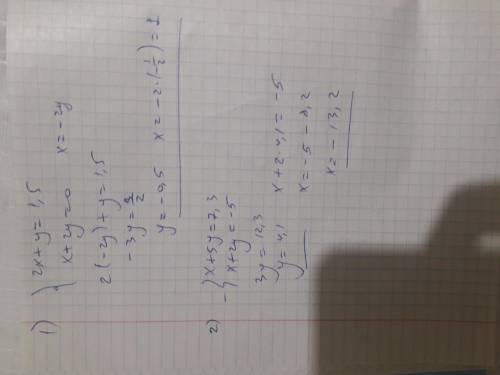 1) { 2x+y=1,5
x+2y=0 x=-2y
2(-2y)+y=1,5
-3y=3/2
y=-0,5 x=-2·(-1/2)=1
2) -{ x+5y=7,3
x+2y=-5
3y=12,3 x+2·4,1=-5
y=4,1 x=-5-8,2
x=-13,2